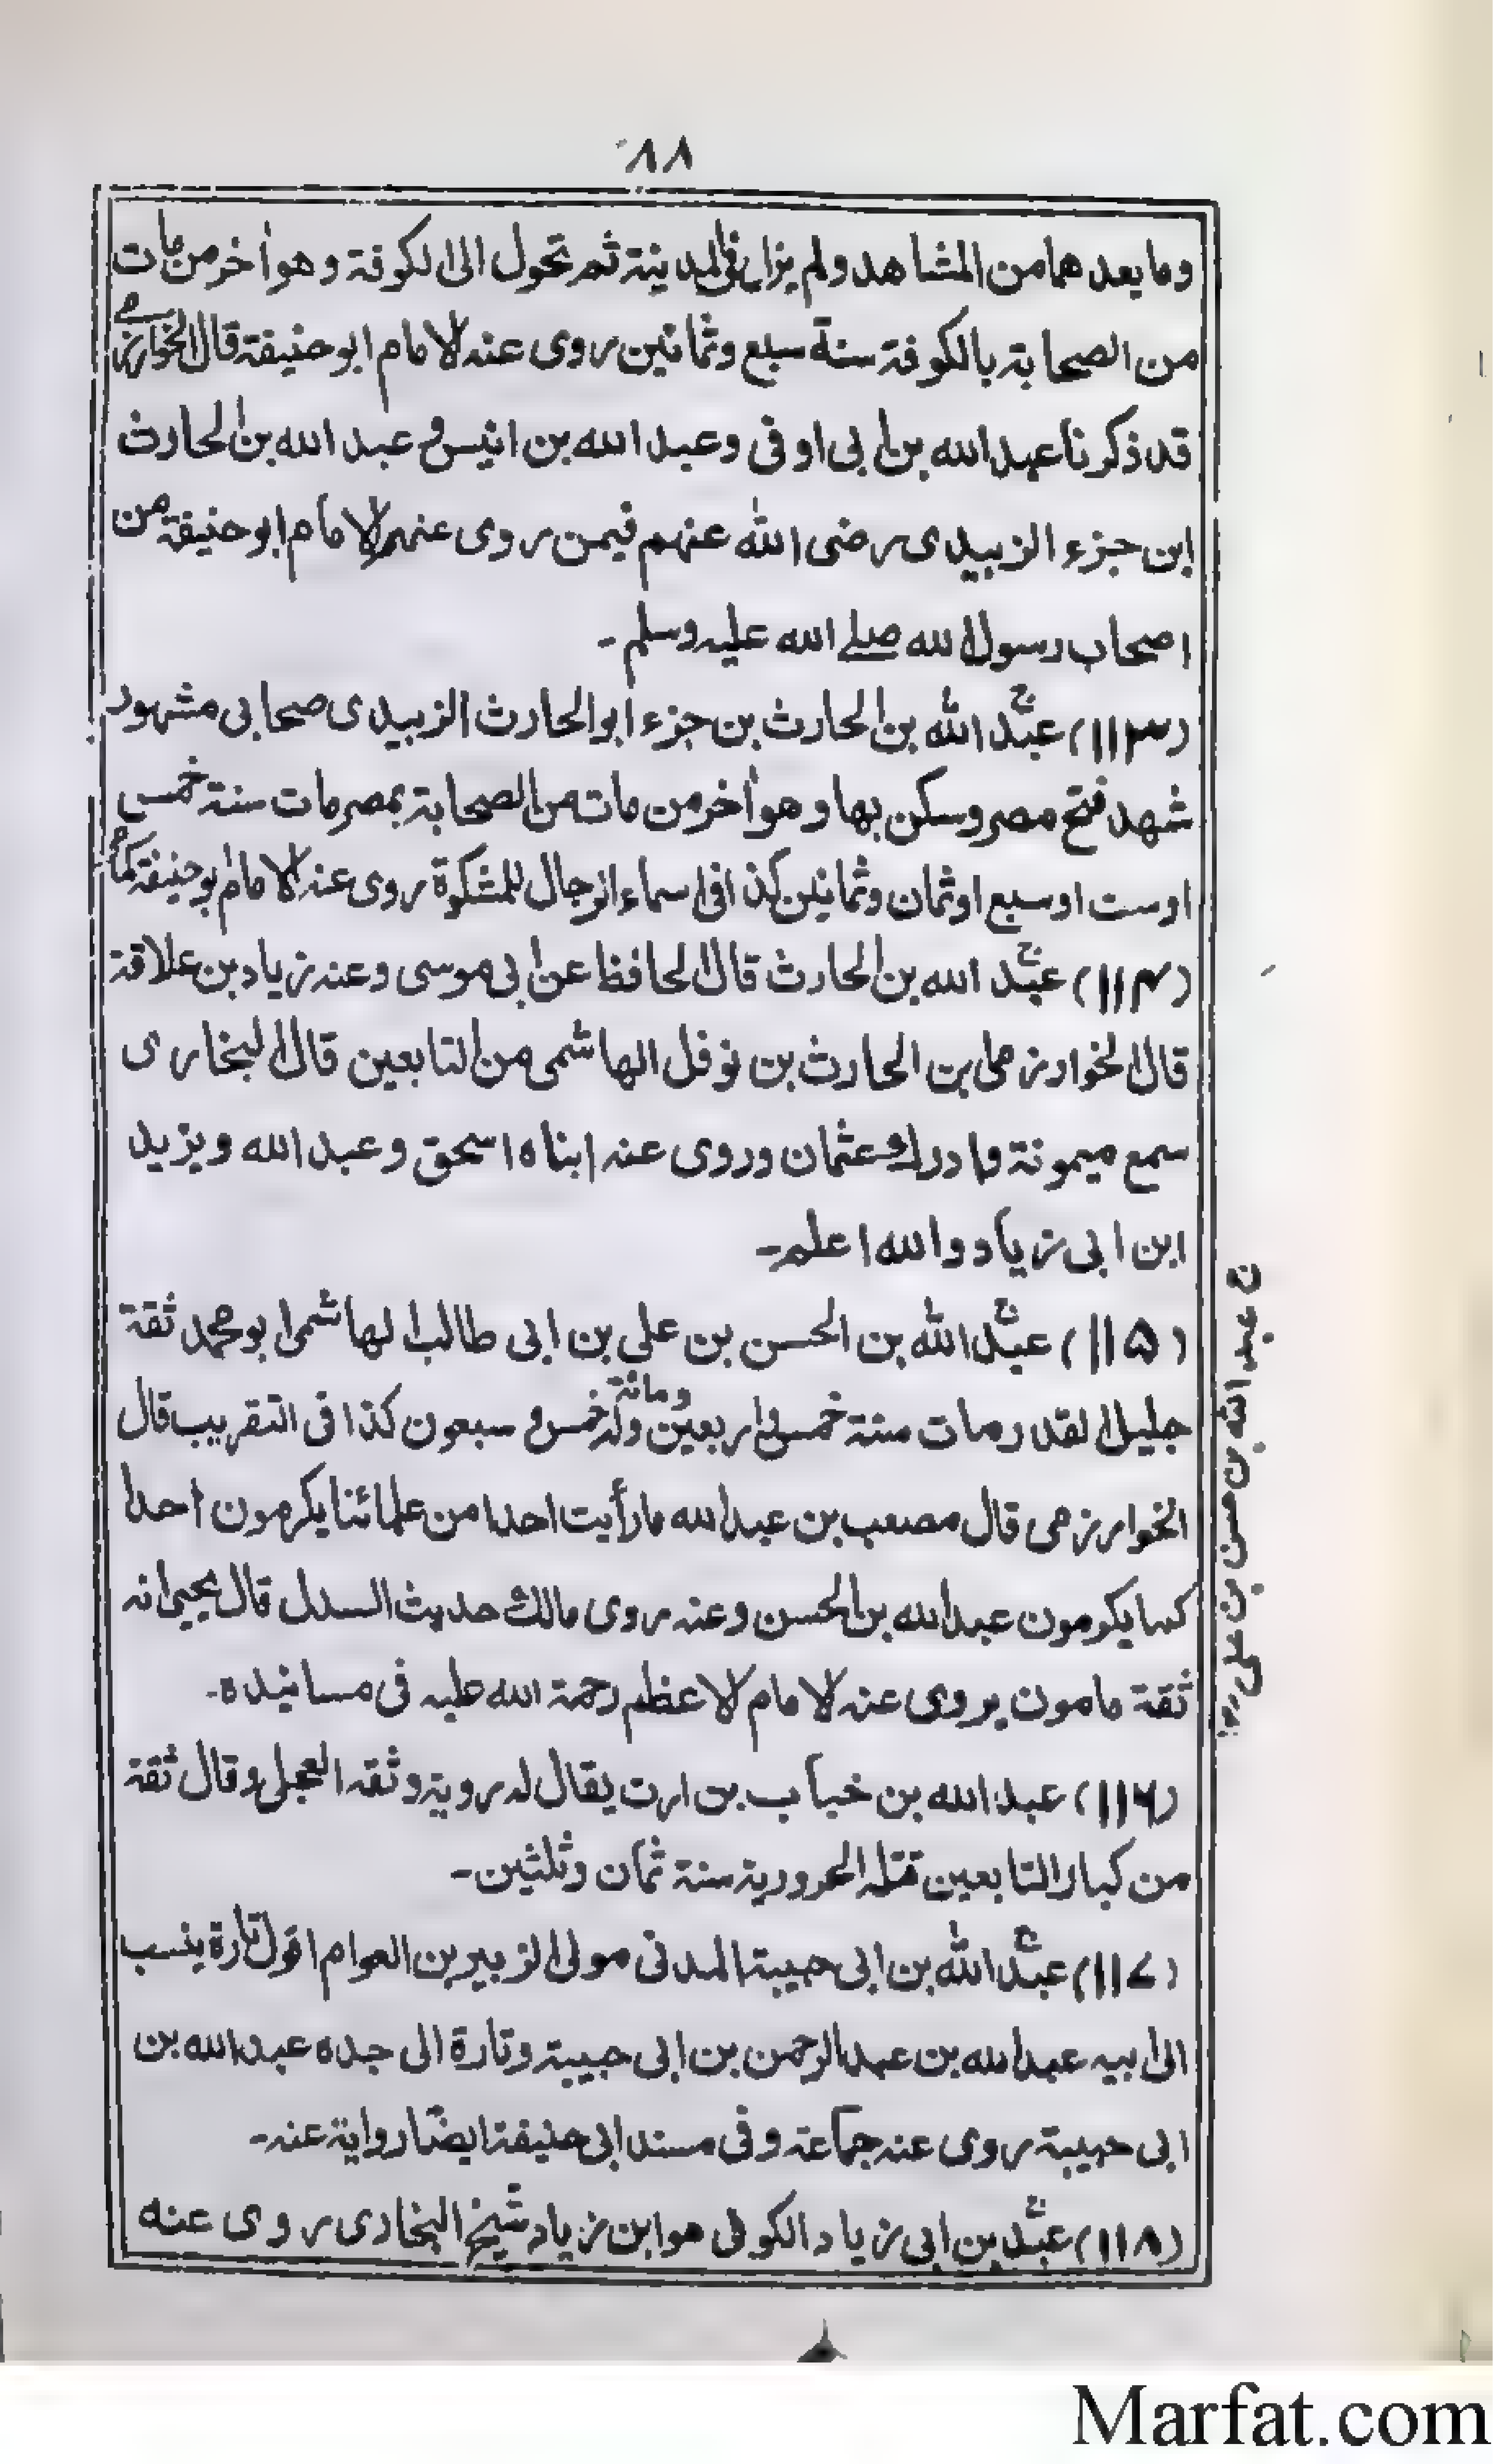 ٨٨
وما بعد هما من المشاهد ولم يزل فى المدينة ثم تحول الى الكوفة وهو اٰخر من مات
من الصحابة بالكوفة سنة سبع وثمانين روى عنه الامام ابو حنيفة قال الخوارزمى
قد ذكرنا عبد الله بن ابى اوفى وعبد الله بن انيس و عبد الله بن الحارث
ابن جزء الزبيدى رضى الله عنهم فيمن روى عنهم الامام ابو حنيفة من
اصحاب رسول الله صلے الله عليه وسلم ۔
(١١٣) عبد الله بن الحارث بن جزء ابو الحارث الزبيدى صحابى مشهور
شهد فتح مصر وسكن بها وهو اٰخر من مات من الصحابة بمصر مات سنة خمس
اوست اوسبع اوثمان وثمانين كذا فى اسماء الرجال للمشكوة روى عنه الامام ابو حنيفة كما مر
(١١٤) عبد الله بن الحارث قال الحافظ عن ابى موسى وعنه زياد بن علاقة
قال الخوارزمى بن الحارث بن نوفل الهاشمى من التابعين قال البخارى
سمع ميمونة وادرك عثمان وروى عنه ابناه اسحق وعبد الله ويزيد
ابن ابى زياد والله اعلم۔
(١١٥) عبد الله بن الحسن بن على بن ابى طالب الهاشمى ابو محمد ثقة
جليل القدر مات سنة خمس واربعين ومائة وله خمس و سبعون كذا فى التقريب قال
الخوارزمى قال مصعب بن عبد الله ما رأيت احدا من علمائنا يكرمون احدا
كما يكرمون عبد الله بن الحسن وعنه روى مالك حديث السدل قال يحيى انه
ثقة مامون يروى عنه الامام الاعظم رحمة الله عليه فى مسانيده۔
(١١٦) عبد الله بن خباب بن ارت يقال له روية وثقه العجلى وقال ثقة
من كبار التابعين قتله الحرورية سنة ثمان وثلثين۔
(١١٧) عبد الله بن ابى حبيبة المدنى مولى الزبير بن العوام اقول تارة ينسب
الى ابيه عبد الله بن عبد الرحمن بن ابى حبيبة وتارة الى جده عبد الله بن
ابى حبيبة روى عنه جماعة وفى مسند ابى حنيفة ايضًا رواية عنه۔
(١١٨) عبد بن ابى زياد الكوفى هو ابن زياد شيخ البخارى روى عنه
ن عبد الله بن حسن بن على رض
Marfat.com